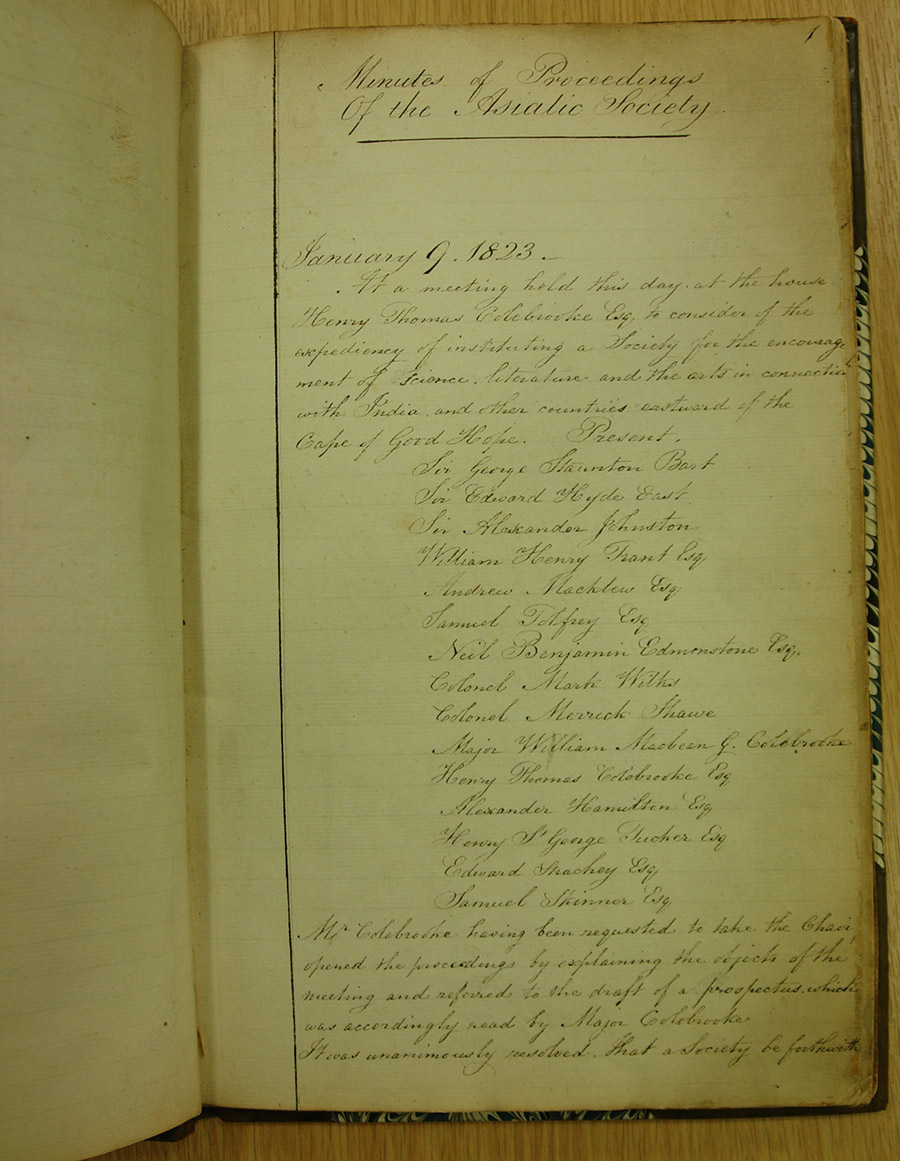 1
Minutes of Proceedings
Of the Asiatic Society
January 9. 1823.
At a meeting held this day. at the house
Henry Thomas Colebrooke Esq, to consider of the
expediency of instituting a Society for the encourage
ment of Science, literature and the arts in connection
with India and other countries eastward of the
Cape of Good Hope. Present.
Sir George Staunton Bart
Sir Edward Hyde East
Sir Alexander Johnston
William Henry Trant Esq
Andrew Macklew Esq
Samuel Tolfrey Esq
Neil Benjamin Edmonstone Esq.
Colonel Mark Wilks
Colonel Merrick Shawe
Major William Macbean G. Colebrooke
Henry Thomas Colebrooke Esq
Alexander Hamilton Esq
Henry St George Tucker Esq
Edward Strachey Esq
Samuel Skinner Esq
Mr Colebrooke having been requested to take the Chair,
opened the proceedings by explaining the objects of the
meeting and referred to the draft of a prospectus, which
was accordingly read by Major Colebrooke
It was unanimously resolved. that a Society be forthwith